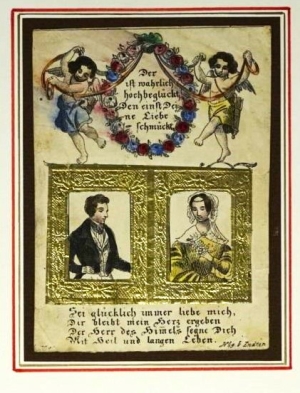 Der
ist wahrlich
hochbeglückt
Den einst Dei
ne Liebe
schmückt
Sei glücklich immer liebe mich,
Dir bleibt mein Herz ergeben
Der Herr des Himels segne Dich
Mit Heil und langen Leben.